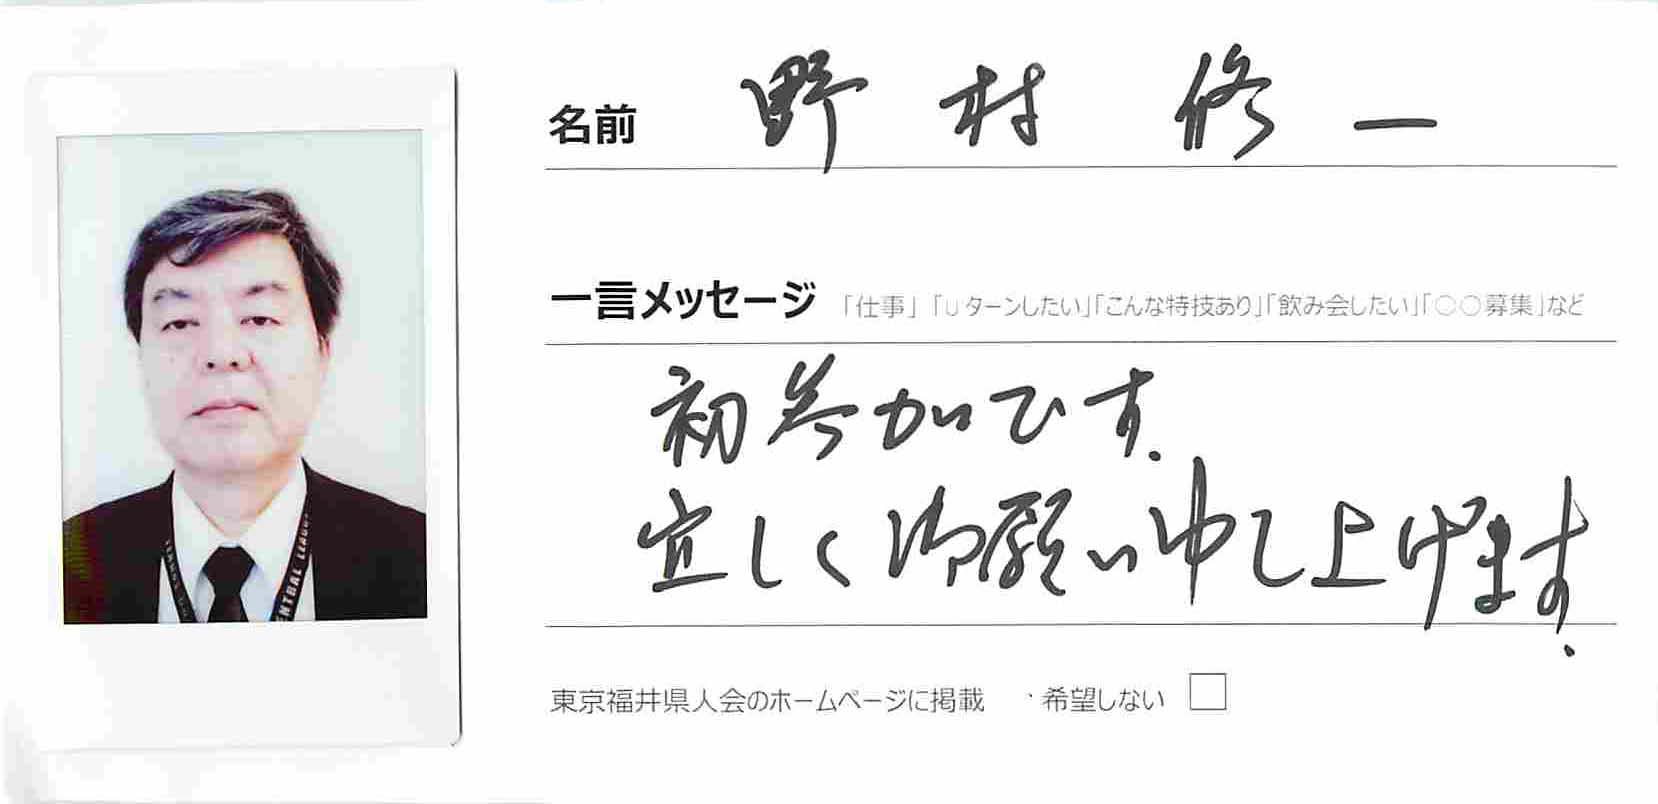 名前 野村 修一
一言メッセージ 「仕事」「Uターンしたい」「こんな特技あり」「飲み会したい」「○○募集」など
初参加です.
宜しく御願い申し上げます.
東京福井県人会のホームページに掲載 ・希望しない □
CENTRAL LEAGU